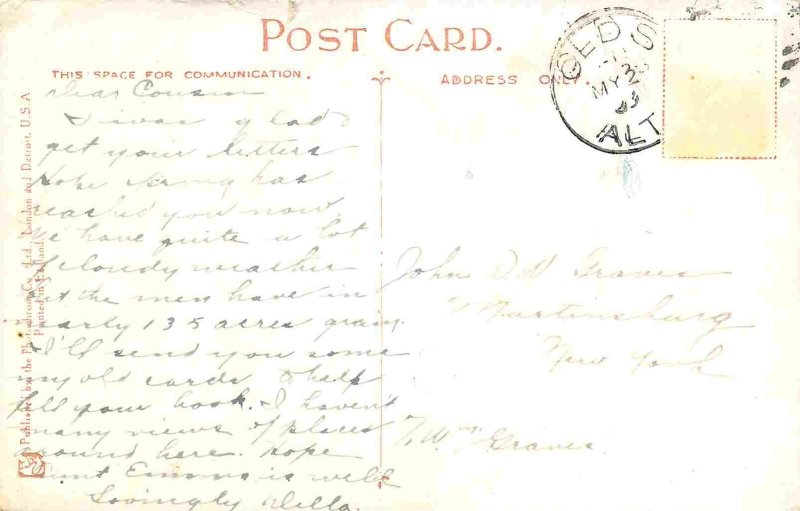 POST CARD.
THIS SPACE FOR COMMUNICATION.
ADDRESS ONLY
GEDS
MY
ALT
Published by the Photochrom Co., Ltd., London and Detroit, U.S.A.
Printed in Holland.
Dear Cousin
I was glad
get your letters
Hope has
reached you now.
We have quite a lot
cloudy weather
but the men have in
nearly 135 acres grain.
I'll send you some
my old cards to help
fill your book. I haven't
many views of places
around here. hope
Aunt Emma is well
Lovingly Della.
John Graves
Martinsburg
New York
Graves